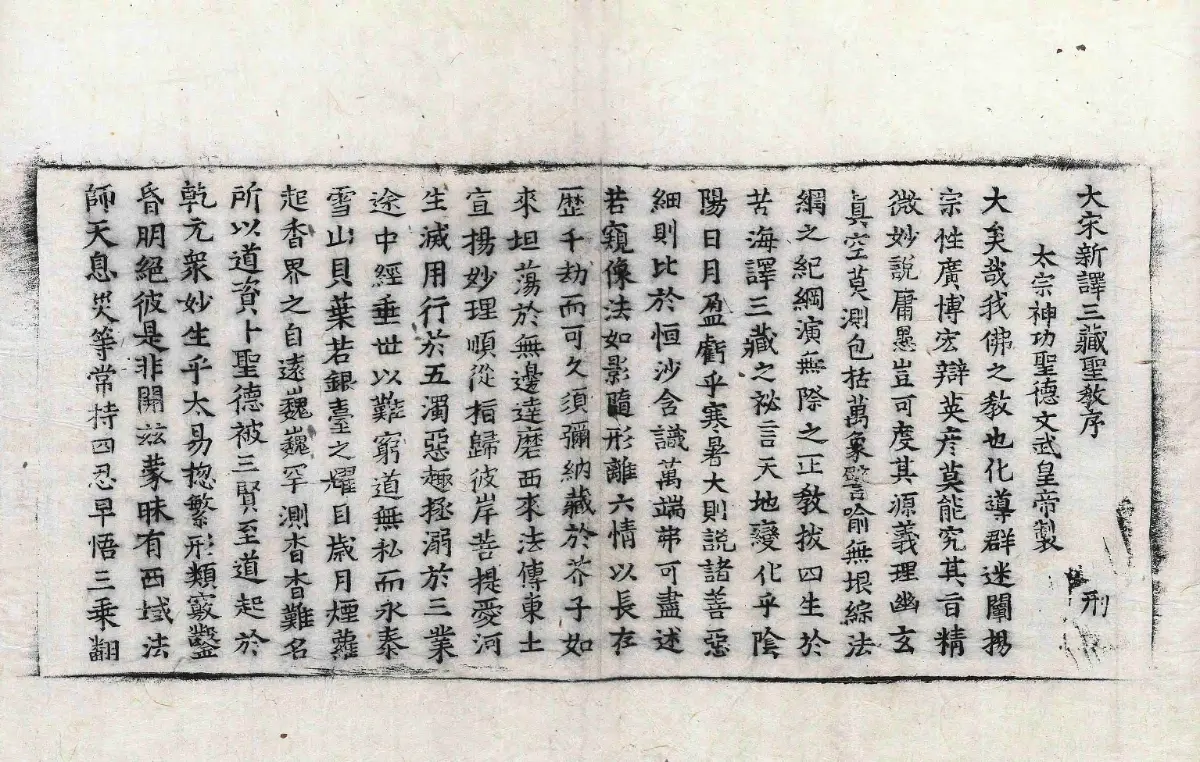 大宋新譯三藏聖教序
太宗神功聖德文武皇帝製
刑
大矣哉我佛之教也化導群迷闡揚
宗性廣博宏辯英彦莫能究其旨精
微妙說庸愚豈可度其源義理幽玄
真空莫測包括萬象譬喻無垠綜法
綱之紀綱演無際之正教拔四生於
苦海譯三藏之祕言天地變化乎陰
陽日月盈虧乎寒暑大則説諸善惡
細則比於恒沙含識萬端弗可盡述
若窺像法如影隨形離六情以長存
歷千劫而可久須彌納藏於芥子如
來坦蕩於無邊達磨西來法傳東土
宣揚妙理順從指歸彼岸菩提愛河
生滅用行於五濁惡趣拯溺於三業
途中經垂世以難窮道無私而永泰
雪山貝葉若銀臺之耀目歲月煙蘿
起香界之自遠巍巍罕測杳杳難名
所以道資十聖德被三賢至道起於
乾元衆妙生乎太易揔繁形類竅鑿
昏明絕彼是非開兹蒙昧有西域法
師天息災等常持四忍早悟三乘翻